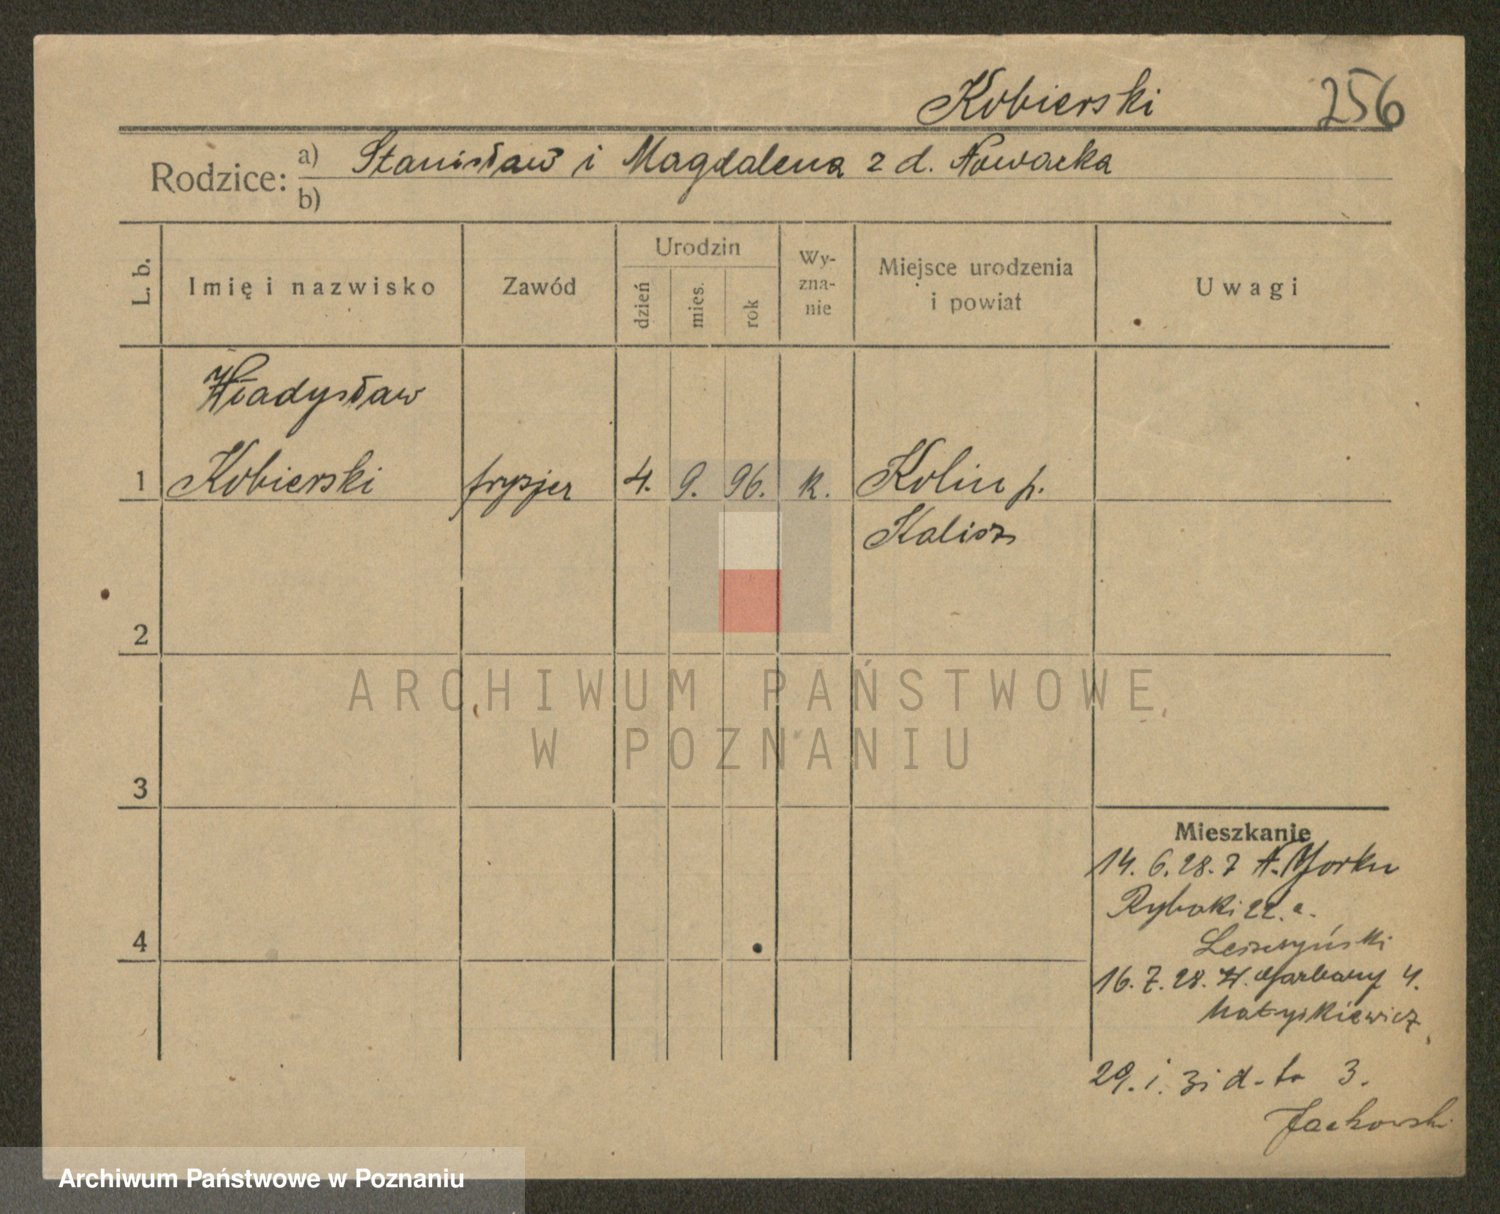 Kobierski 256
Rodzice: a) Stanisław i Magdalena z d. Nowacka
b)
L. b. Imię i nazwisko Zawód Urodzin dzień mies. rok Wy-zna-nie Miejsce urodzenia i powiat Uwagi
Władysław
1 Kobierski fryzjer 4. 9. 96. k. Kolin p.
Kalisz
2
ARCHIWUM PAŃSTWOWE
W POZNANIU
3
Mieszkanie
14. 6. 28. z
Rybaki 22. a.
4
Leszczyński
16. 7. 28. W. Garbary 4.
Matyskiewicz
29. i. 31 d-to 3.
Jackowski
Archiwum Państwowe w Poznaniu